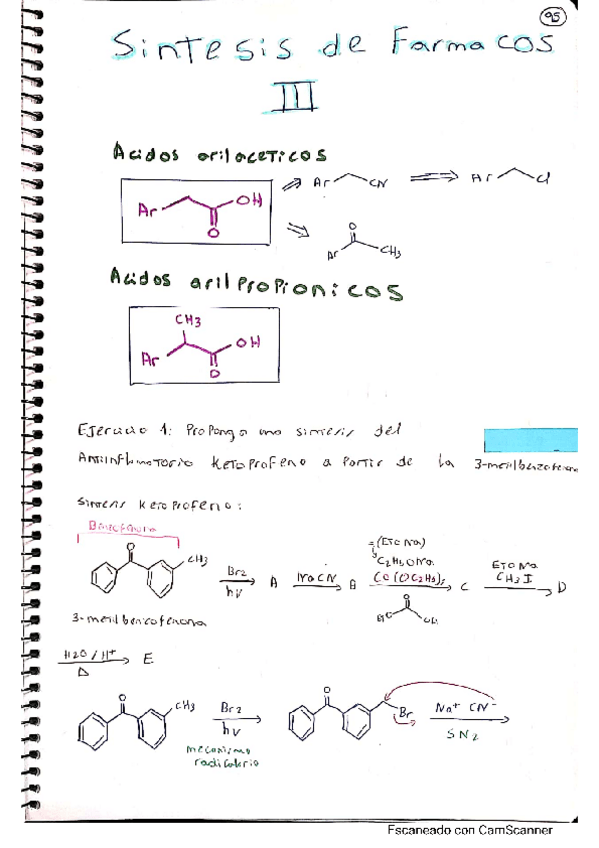 95
Sintesis de Farmacos
III
Acidos arilaceticos
Ar OH O
Ar CN
Ar Cl
Ar O CH3
Acidos arilpropionicos
CH3
Ar OH O
Ejercicio 1: Proponga una sintesis del
Antiinflamatorio Ketoprofeno a partir de la 3-metilbenzofenona
Sintesis Ketoprofeno:
Benzofenona
O CH3
Br2
hν
A
NaCN
B
(EtONa)
C2H5ONa
CO(OC2H5)2
C
EtONa
CH3I
D
3-metilbenzofenona
H2O/H+
Δ
E
O CH3
Br2
hν
mecanismo
radicalario
O Br
Na+ CN-
SN2
Escaneado con CamScanner